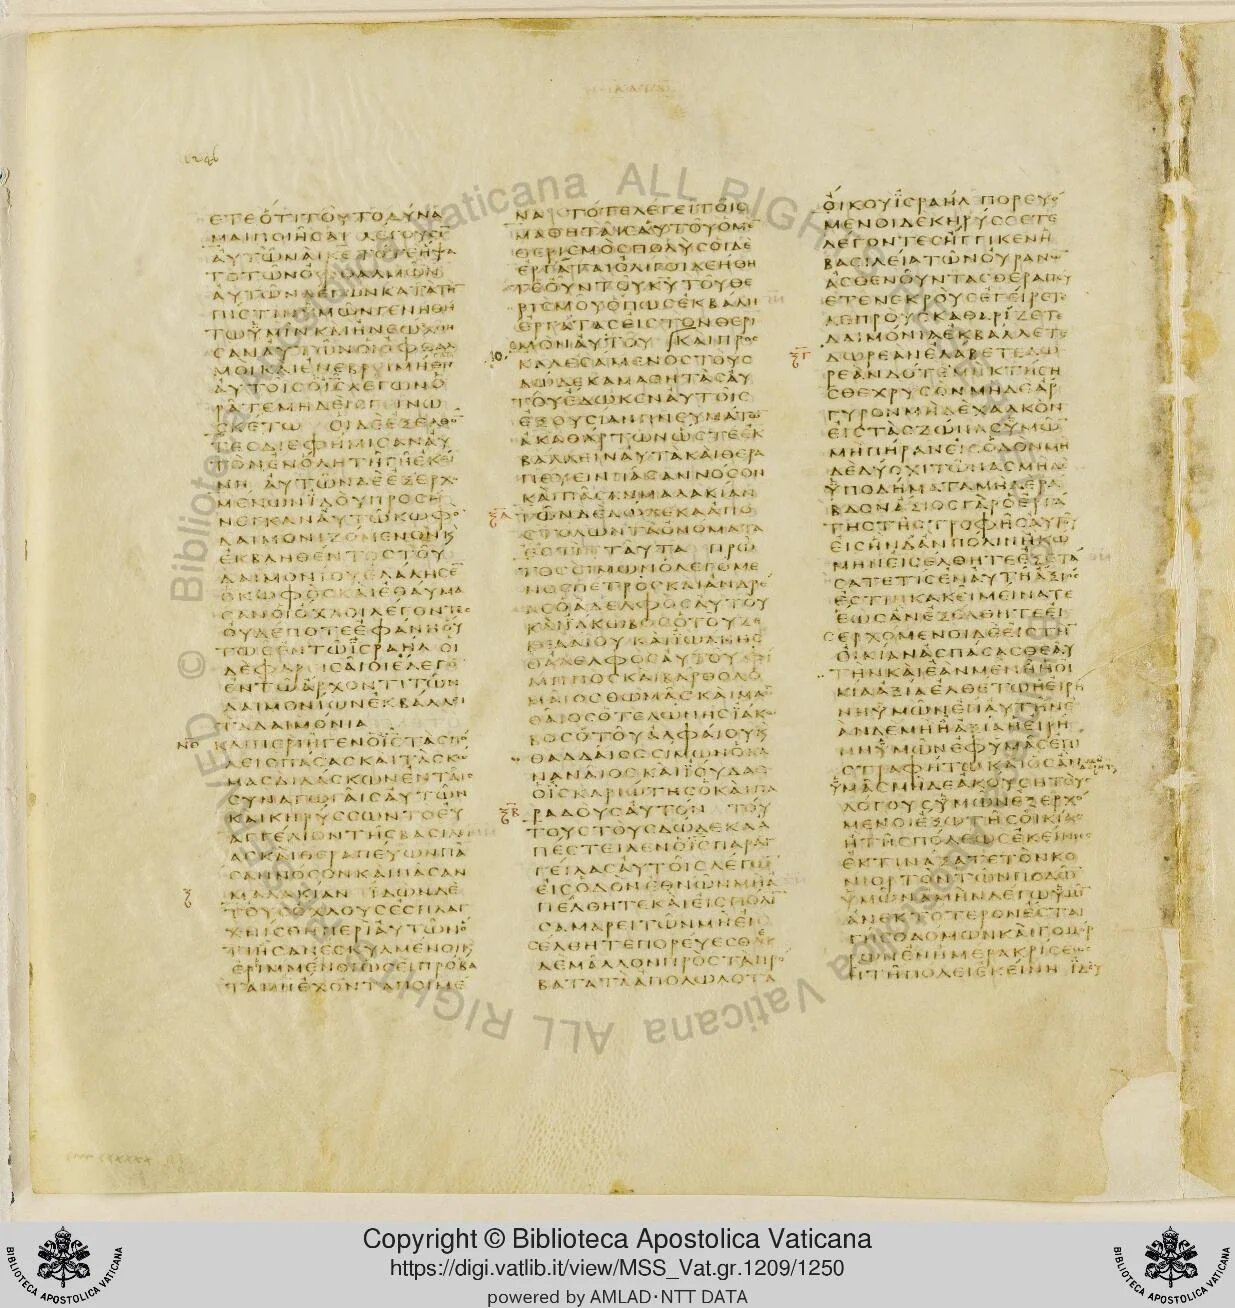 ΕΤΕΟΤΙΤΟΥΤΟΔΥΝΑ
ΜΑΙΠΟΙΗϹΑΙ
ΤΟΤΩΝΟΦΘΑΛΜΩΝ
ΑΥΤΩΝΛΕΓΩΝΚΑΤΑΤΗ
ΠΙϹΤΙΝΥΜΩΝΓΕΝΗΘΗ
ΤΩΥΜΙΝΚΑΙΗΝΕΩΧΘΗ
ϹΑΝΑΥΤΩΝΟΙΟΦΘΑΛ
ΜΟΙΚΑΙΕΝΕΒΡΙΜΗΘΗ
ΑΥΤΟΙϹΟΙϹΛΕΓΩΝΟ
ΡΑΤΕΜΗΔΕΙϹΓΕΙΝΩ
ϹΚΕΤΩ ΟΙΔΕΕΞΕΛΘΟ
ΤΕϹΔΙΕΦΗΜΙϹΑΝΑΥ
ΤΟΝΕΝΟΛΗΤΗΓΗΕΚΕΙ
ΝΗ ΑΥΤΩΝΔΕΕΞΕΡΧΟ
ΜΕΝΩΝΙΔΟΥΠΡΟϹΗ
ΝΕΓΚΑΝΑΥΤΩΚΩΦΟ
ΔΑΙΜΟΝΙΖΟΜΕΝΟΝΚ
ΕΚΒΛΗΘΕΝΤΟϹΤΟΥ
ΔΑΙΜΟΝΙΟΥΕΛΑΛΗϹΕ
ΟΚΩΦΟϹΚΑΙΕΘΑΥΜΑ
ϹΑΝΟΙΟΧΛΟΙΛΕΓΟΝΤΕϹ
ΟΥΔΕΠΟΤΕΕΦΑΝΗΟΥ
ΤΩϹΕΝΤΩΙϹΡΑΗΛ ΟΙ
ΔΕΦΑΡΙϹΑΙΟΙΕΛΕΓΟ
ΕΝΤΩΑΡΧΟΝΤΙΤΩΝ
ΔΑΙΜΟΝΙΩΝΕΚΒΑΛΛΕΙ
ΤΑΔΑΙΜΟΝΙΑ
ΚΑΙΠΕΡΙΗΓΕΝΟΙϹΤΑϹΠΟ
ΛΕΙϹΠΑϹΑϹΚΑΙΤΑϹΚΩ
ΜΑϹΔΙΔΑϹΚΩΝΕΝΤΑΙϹ
ϹΥΝΑΓΩΓΑΙϹΑΥΤΩΝ
ΚΑΙΚΗΡΥϹϹΩΝΤΟΕΥ
ΑΓΓΕΛΙΟΝΤΗϹΒΑϹΙΛΕΙ
ΑϹΚΑΙΘΕΡΑΠΕΥΩΝΠΑ
ϹΑΝΝΟϹΟΝΚΑΙΠΑϹΑΝ
ΜΑΛΑΚΙΑΝ ΙΔΩΝΔΕ
ΤΟΥϹΟΧΛΟΥϹΕϹΠΛΑΓ
ΧΝΙϹΘΗΠΕΡΙΑΥΤΩΝΟ
ΤΙΗϹΑΝΕϹΚΥΛΜΕΝΟΙΚ
ΕΡΙΜΜΕΝΟΙΩϹΕΙΠΡΟΒΑ
ΤΑΜΗΕΧΟΝΤΑΠΟΙΜΕ
ΝΑ ΤΟΤΕΛΕΓΕΙΤΟΙϹ
ΜΑΘΗΤΑΙϹΑΥΤΟΥΟΜΕ
ΘΕΡΙϹΜΟϹΠΟΛΥϹΟΙΔΕ
ΕΡΓΑΤΑΙΟΛΙΓΟΙΔΕΗΘΗ
ΤΕΟΥΝΤΟΥΚΥΤΟΥΘΕ
ΡΙϹΜΟΥΟΠΩϹΕΚΒΑΛΗ
ΕΡΓΑΤΑϹΕΙϹΤΟΝΘΕΡΙ
ΜΟΝΑΥΤΟΥ ΚΑΙΠΡΟϹ
ΚΑΛΕϹΑΜΕΝΟϹΤΟΥϹ
ΔΩΔΕΚΑΜΑΘΗΤΑϹΑΥ
ΤΟΥΕΔΩΚΕΝΑΥΤΟΙϹ
ΕΞΟΥϹΙΑΝΠΝΕΥΜΑΤΩ
ΑΚΑΘΑΡΤΩΝΩϹΤΕΕΚ
ΒΑΛΛΕΙΝΑΥΤΑΚΑΙΘΕΡΑ
ΠΕΥΕΙΝΠΑϹΑΝΝΟϹΟΝ
ΚΑΙΠΑϹΑΝΜΑΛΑΚΙΑΝ
ΤΩΝΔΕΔΩΔΕΚΑΑΠΟ
ϹΤΟΛΩΝΤΑΟΝΟΜΑΤΑ
ΕϹΤΙΝΤΑΥΤΑ ΠΡΩ
ΤΟϹϹΙΜΩΝΟΛΕΓΟΜΕ
ΝΟϹΠΕΤΡΟϹΚΑΙΑΝΔΡΕ
ΑϹΟΑΔΕΛΦΟϹΑΥΤΟΥ
ΚΑΙΙΑΚΩΒΟϹΟΤΟΥΖΕ
ΒΕΔΑΙΟΥ ΚΑΙΙΩΑΝΗϹ
ΟΑΔΕΛΦΟϹΑΥΤΟΥΦΙ
ΛΙΠΠΟϹΚΑΙΒΑΡΘΟΛΟ
ΜΑΙΟϹΘΩΜΑϹΚΑΙΜΑΘ
ΘΑΙΟϹΟΤΕΛΩΝΗϹΙΑΚΩ
ΒΟϹΟΤΟΥΑΛΦΑΙΟΥΚ
ΘΑΔΔΑΙΟϹϹΙΜΩΝΟΚΑ
ΝΑΝΑΙΟϹΚΑΙΙΟΥΔΑϹ
ΟΙϹΚΑΡΙΩΤΗϹΟΚΑΙΠΑ
ΡΑΔΟΥϹΑΥΤΟΝ ΤΟΥ
ΤΟΥϹΤΟΥϹΔΩΔΕΚΑΑ
ΠΕϹΤΕΙΛΕΝΟΙϹΠΑΡΑΓ
ΓΕΙΛΑϹΑΥΤΟΙϹΛΕΓΩ
ΕΙϹΟΔΟΝΕΘΝΩΝΜΗΑ
ΠΕΛΘΗΤΕΚΑΙΕΙϹΠΟΛΙ
ϹΑΜΑΡΕΙΤΩΝΜΗΕΙϹ
ΕΛΘΗΤΕΠΟΡΕΥΕϹΘΕ
ΔΕΜΑΛΛΟΝΠΡΟϹΤΑΠΡΟ
ΒΑΤΑΤΑΑΠΟΛΩΛΟΤΑ
ΟΙΚΟΥΙϹΡΑΗΛ ΠΟΡΕΥΟ
ΜΕΝΟΙΔΕΚΗΡΥϹϹΕΤΕ
ΛΕΓΟΝΤΕϹΗΓΓΙΚΕΝΗ
ΒΑϹΙΛΕΙΑΤΩΝΟΥΡΑΝΩ
ΑϹΘΕΝΟΥΝΤΑϹΘΕΡΑΠΕΥ
ΕΤΕΝΕΚΡΟΥϹΕΓΕΙΡΕΤΕ
ΛΕΠΡΟΥϹΚΑΘΑΡΙΖΕΤΕ
ΔΑΙΜΟΝΙΑΕΚΒΑΛΛΕΤΕ
ΔΩΡΕΑΝΕΛΑΒΕΤΕΔΩ
ΡΕΑΝΔΟΤΕΜΗΚΤΗϹΗ
ϹΘΕΧΡΥϹΟΝΜΗΔΕΑΡ
ΓΥΡΟΝΜΗΔΕΧΑΛΚΟΝ
ΕΙϹΤΑϹΖΩΝΑϹΥΜΩ
ΜΗΠΗΡΑΝΕΙϹΟΔΟΝΜΗ
ΔΕΔΥΟΧΙΤΩΝΑϹΜΗΔΕ
ΥΠΟΔΗΜΑΤΑΜΗΔΕΡΑ
ΒΔΟΝΑΞΙΟϹΓΑΡΟΕΡΓΑ
ΤΗϹΤΗϹΤΡΟΦΗϹΑΥΤΟΥ
ΕΙϹΗΝΔΑΝΠΟΛΙΝΗΚΩ
ΜΗΝΕΙϹΕΛΘΗΤΕΕΞΕΤΑ
ϹΑΤΕΤΙϹΕΝΑΥΤΗΑΞΙΟϹ
ΕϹΤΙΝΚΑΚΕΙΜΕΙΝΑΤΕ
ΕΩϹΑΝΕΞΕΛΘΗΤΕΕΙ
ϹΕΡΧΟΜΕΝΟΙΔΕΕΙϹΤΗ
ΟΙΚΙΑΝΑϹΠΑϹΑϹΘΕΑΥ
ΤΗΝΚΑΙΕΑΝΜΕΝΗΗΟΙ
ΚΙΑΑΞΙΑΕΛΘΕΤΩΗΕΙΡΗ
ΝΗΥΜΩΝΕΠΑΥΤΗΝΕ
ΑΝΔΕΜΗΗΑΞΙΑΗΕΙΡΗ
ΝΗΥΜΩΝΕΦΥΜΑϹΕΠΙ
ϹΤΡΑΦΗΤΩ ΚΑΙΟϹΑΝ
ΥΜΑϹΜΗΔΕΑΚΟΥϹΗΤΟΥϹ
ΛΟΓΟΥϹΥΜΩΝΕΞΕΡΧΟ
ΜΕΝΟΙΕΞΩΤΗϹΟΙΚΙΑϹ
ΗΤΗϹΠΟΛΕΩϹΕΚΕΙΝΗϹ
ΕΚΤΙΝΑΞΑΤΕΤΟΝΚΟ
ΝΙΟΡΤΟΝΤΩΝΠΟΔΩ
ΥΜΩΝΑΜΗΝΛΕΓΩΥΜΙ
ΑΝΕΚΤΟΤΕΡΟΝΕϹΤΑΙ
ΓΗϹΟΔΟΜΩΝΚΑΙΓΟΜΟΡ
ΡΩΝΕΝΗΜΕΡΑΚΡΙϹΕΩϹ
ΗΤΗΠΟΛΕΙΕΚΕΙΝΗ ΙΔΟΥ
© Biblioteca Apostolica Vaticana ALL RIGHTS RESERVED
Copyright © Biblioteca Apostolica Vaticana
https://digi.vatlib.it/view/MSS_Vat.gr.1209/1250
powered by AMLAD·NTT DATA
BIBLIOTECA APOSTOLICA VATICANA
BIBLIOTECA APOSTOLICA VATICANA